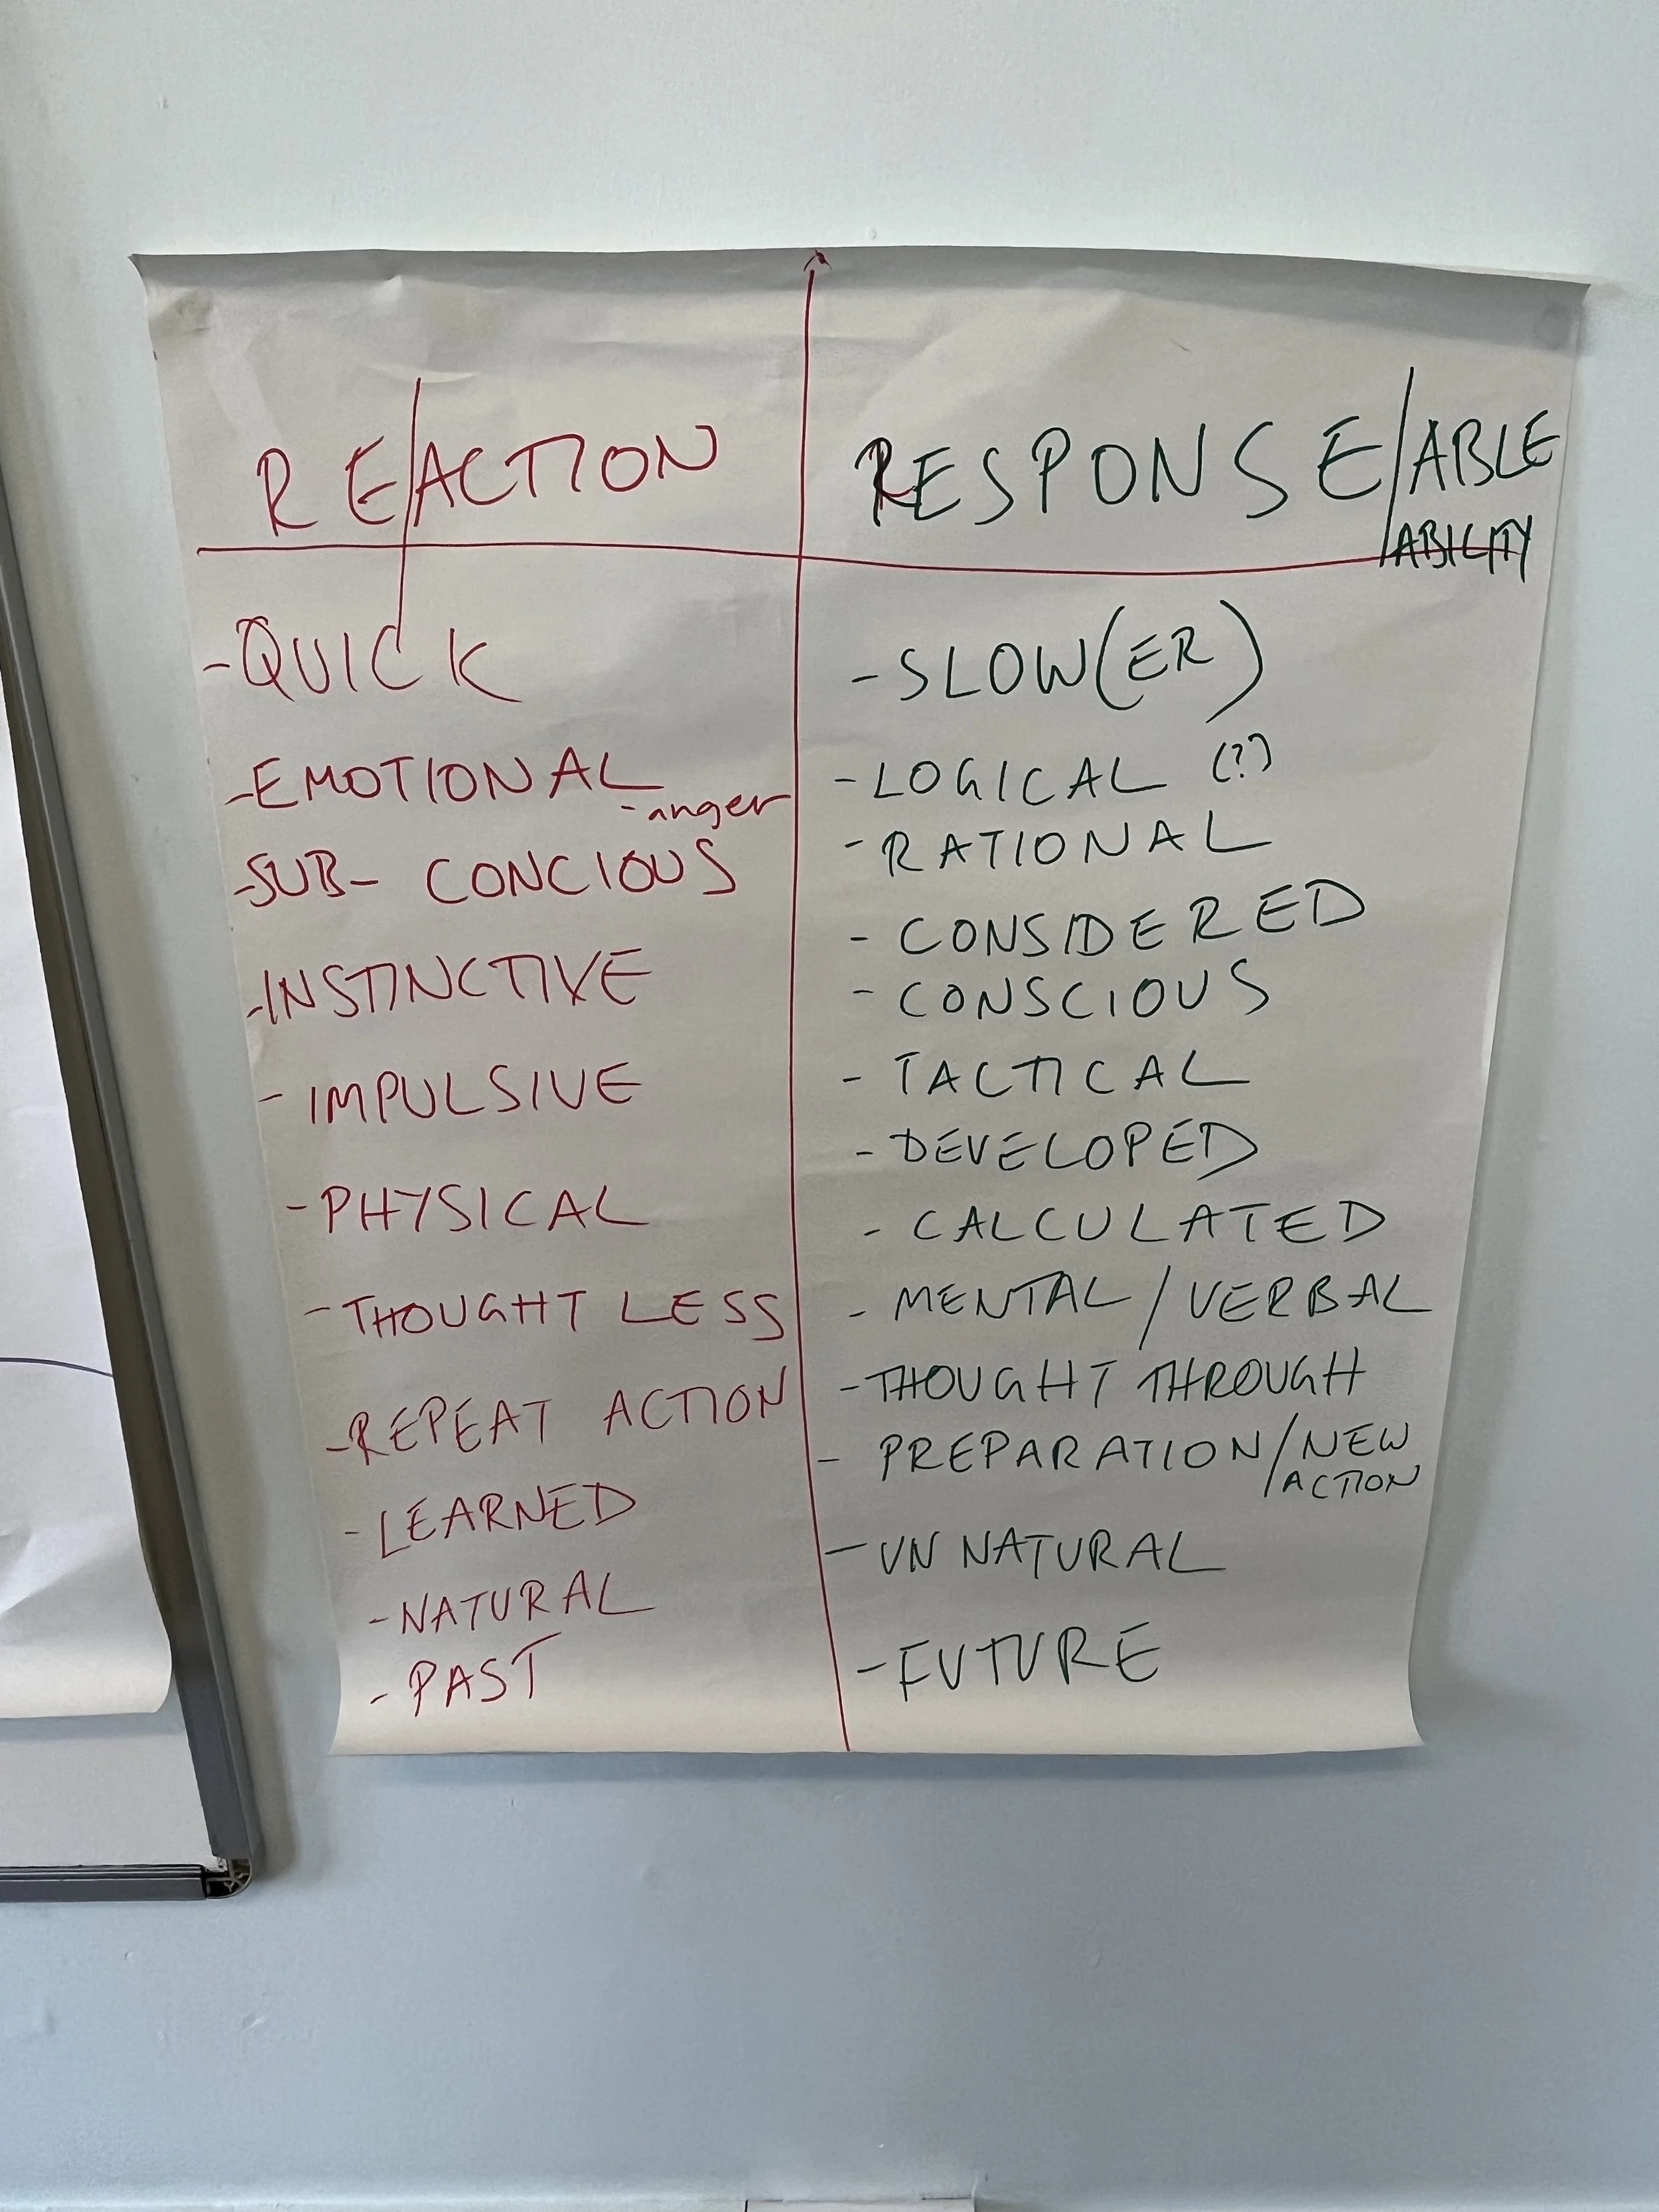 RE/ACTION
- QUICK
- EMOTIONAL
- anger
- SUB- CONCIOUS
- INSTINCTIVE
- IMPULSIVE
- PHYSICAL
- THOUGHT LESS
- REPEAT ACTION
- LEARNED
- NATURAL
- PAST
RESPONSE/ABLE
/ABILITY
- SLOW(ER)
- LOGICAL (?)
- RATIONAL
- CONSIDERED
- CONSCIOUS
- TACTICAL
- DEVELOPED
- CALCULATED
- MENTAL / VERBAL
- THOUGHT THROUGH
- PREPARATION / NEW
ACTION
- UN NATURAL
- FUTURE